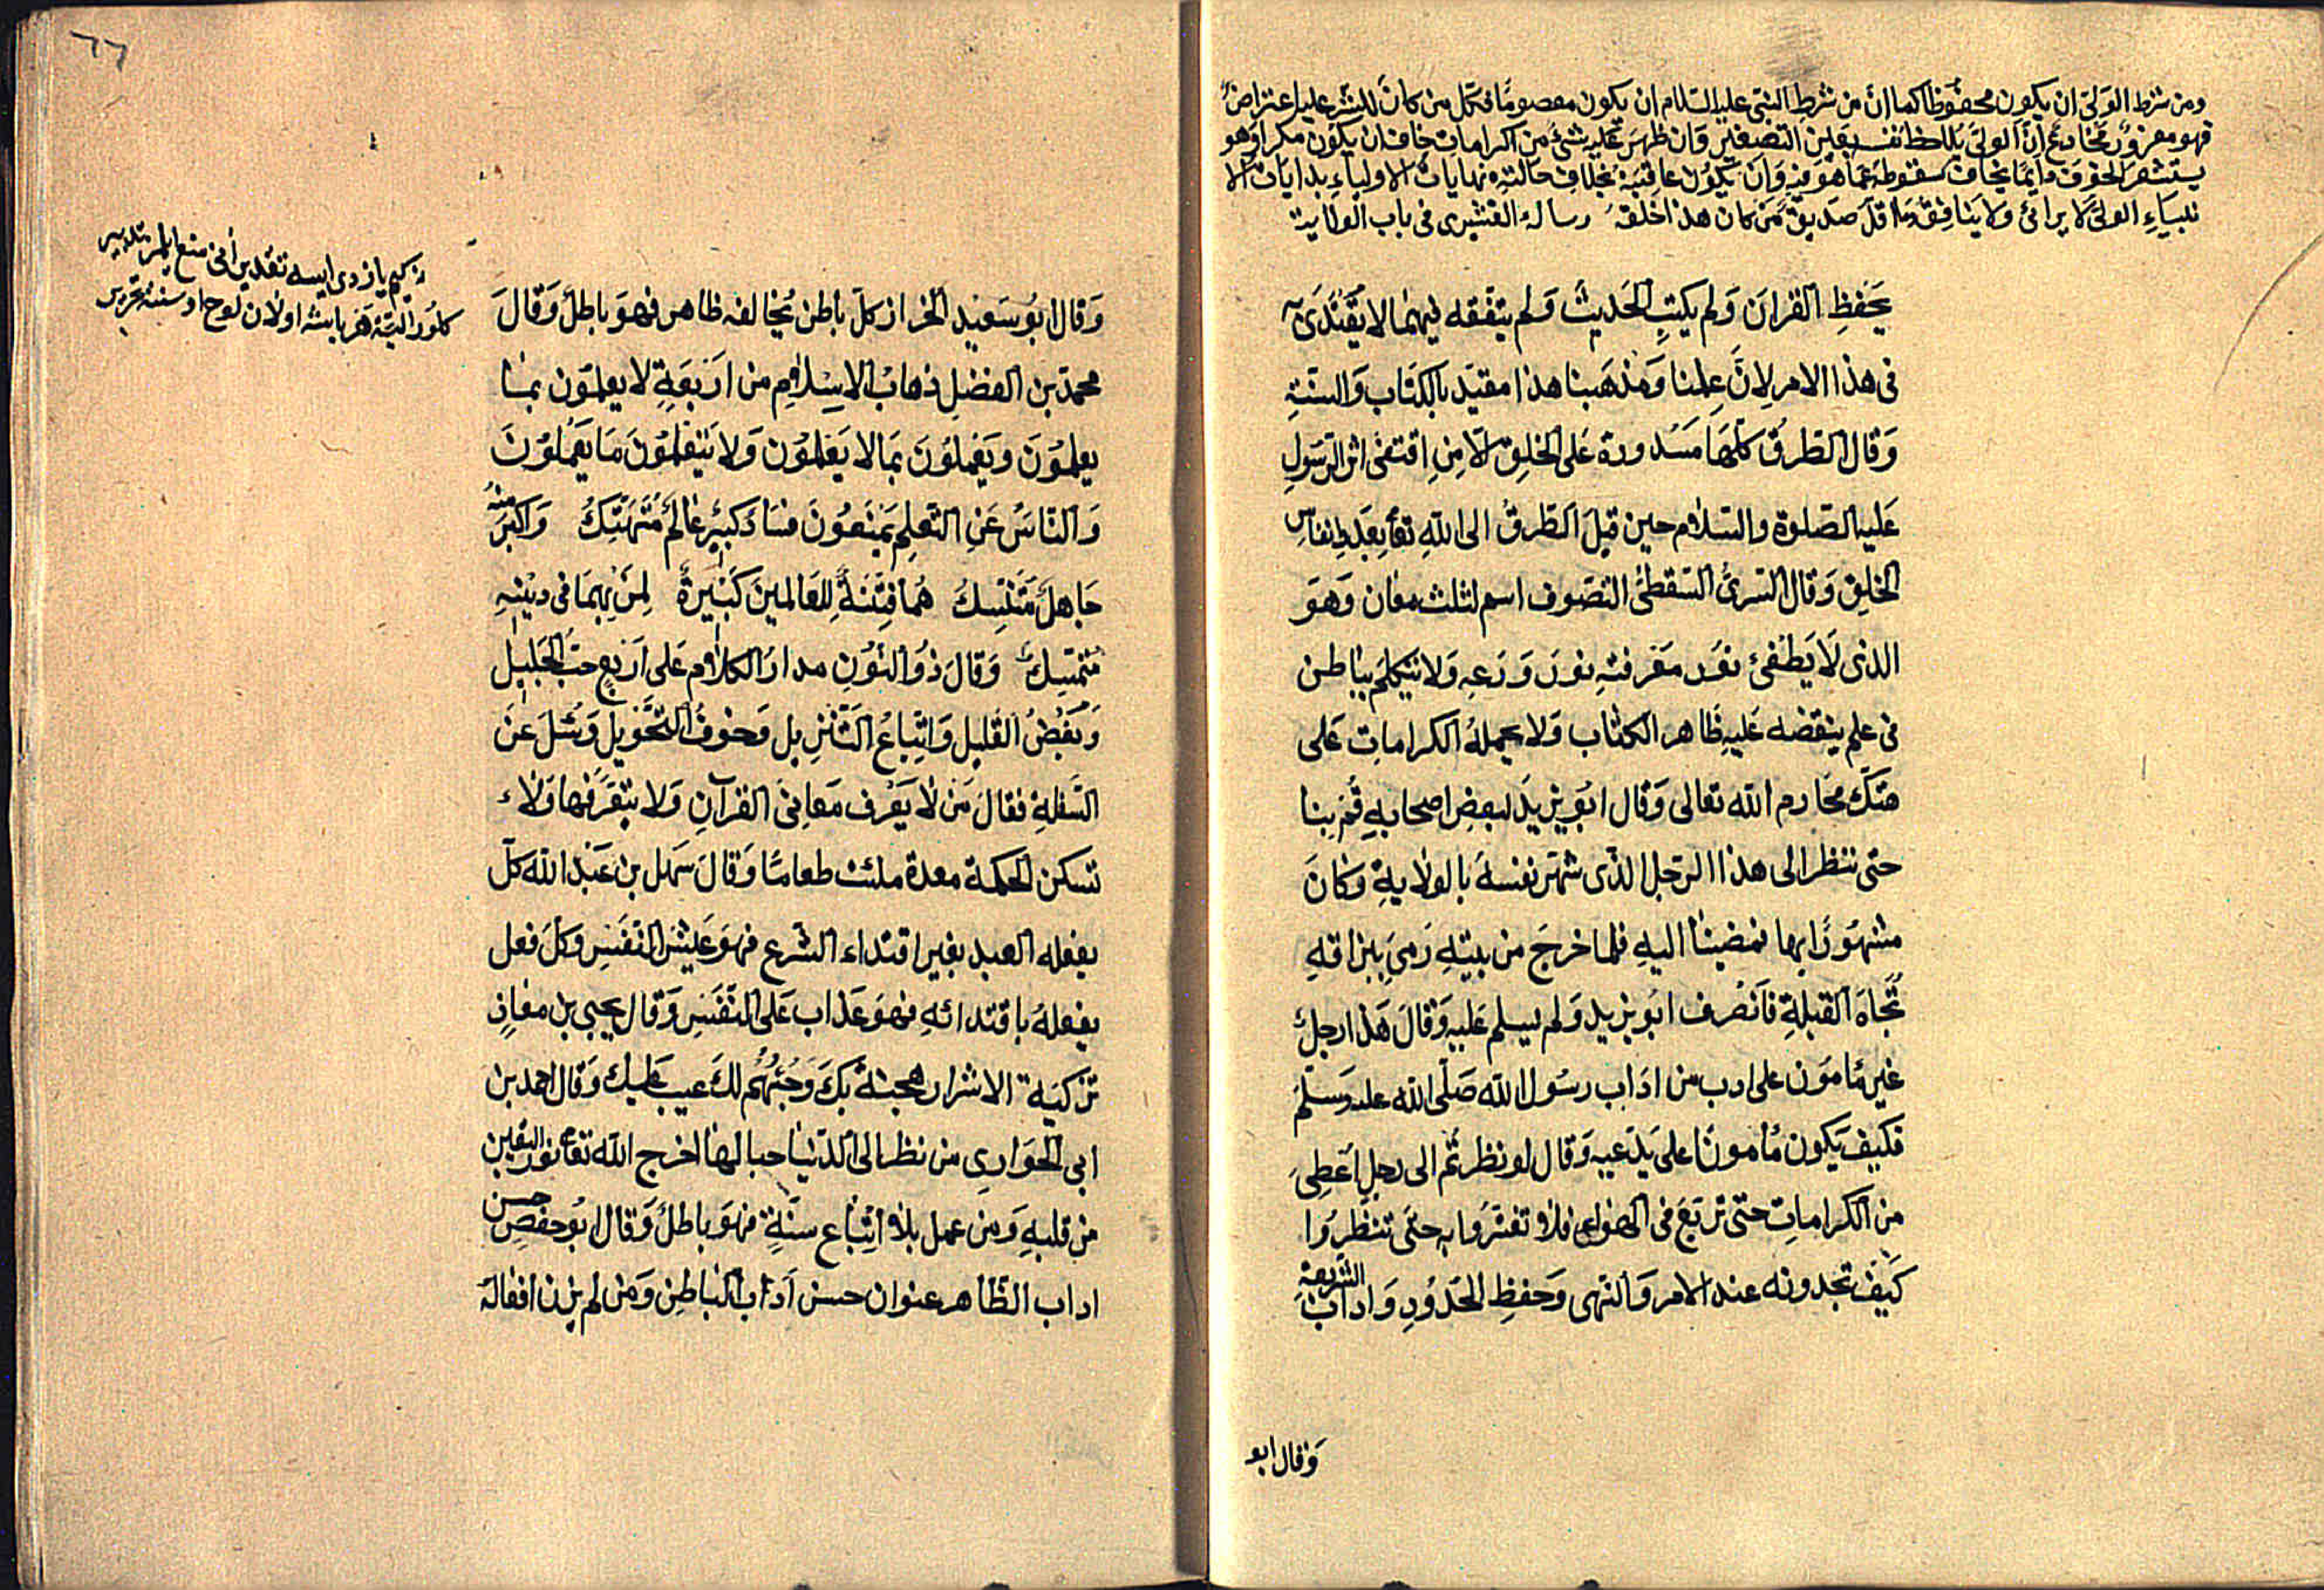 ومن شرط الولى ان يكون محفوظا كما ان من شرط النبى عليه السلام ان يكون معصوما فكل من كان للشرع عليه اعتراض
فهو مغرور مخادع ان الولى يلاحظ نفسه بعين التصغير وان ظهر عليه شئ من الكرامات خاف ان يكون مكرا وهو
يستشعر الخوف دايما يخاف سقوطه عما هو فيه وان يكون عاقبته بخلاف حالته نهايات الاولياء بدايات الا
نبياء الولى لا يرائ ولا ينافق وما اقل صديق من كان هذا خلقه رساله القشيرى فى باب الولاية
يحفظ القران ولم يكتب الحديث ولم يتفقه فيهما لا يقتدى به
فى هذا الامر لان علمنا ومذهبنا هذا مقيد بالكتاب والسنة
وقال الطرق كلها مسدودة على الخلق الا من اقتفى اثر الرسول
عليه الصلوة والسلام حين قيل الطرق الى الله تعا بعدد انفاس
الخلق وقال السرى السقطى التصوف اسم لثلث معان وهو
الذى لا يطفئ نور معرفته نور ورعه ولا يتكلم بباطن
فى علم ينقضه عليه ظاهر الكتاب ولا يحمله الكرامات على
هتك محارم الله تعالى وقال ابو يزيد لبعض اصحابه قم بنا
حتى ننظر الى هذا الرجل الذى شهر نفسه بالولاية وكان
مشهورا بها فمضينا اليه فلما خرج من بيته رمى ببزاقه
تجاه القبلة فانصرف ابو يزيد ولم يسلم عليه وقال هذا رجل
غير مامون على ادب من اداب رسول الله صلى الله عليه وسلم
فكيف يكون مامونا على ما يدعيه وقال لو نظرتم الى رجل اعطى
من الكرامات حتى تربع فى الهواء فلا تغتروا به حتى تنظروا
كيف تجدونه عند الامر والنهى وحفظ الحدود واداب الشريعة
وقال ابو
٦٦
كلور البته هر بابشه اولان لوح اوستنه
وقال ابو سعيد الخراز كل باطن يخالفه ظاهر فهو باطل وقال
محمد بن الفضل ذهاب الاسلام من اربعة لا يعلمون بما
يعلمون ويعملون بما لا يعلمون ولا يتعلمون ما يعملون
والناس عن التعلم يمنعون فساد كبير عالم متهتك واكبر منه
جاهل متنسك هما فتنة للعالمين كبيرة لمن بهما فى دينه
متمسك وقال ذو النون مدار الكلام على اربع حب الجليل
وبغض القليل واتباع التنزيل وخوف التحويل وسئل عن
السفلة فقال من لا يعرف معانى القران ولا يتعرفها ولا
تسكن الحكمة معدة ملئت طعاما وقال سهل بن عبد الله كل
يفعله العبد بغير اقتداء الشرع فهو عيش النفس وكل فعل
يفعله باقتدائه فهو عذاب على النفس وقال يحيى بن معاذ
تزكية الاشرار هجنة بك وحبهم لك عيب عليك وقال احمد بن
ابى الحوارى من نظر الى الدنيا حبا لها اخرج الله تعا نور اليقين
من قلبه ومن عمل بلا اتباع سنة فهو باطل وقال ابو حفص حسن
اداب الظاهر عنوان حسن اداب الباطن ومن لم يزن افعاله